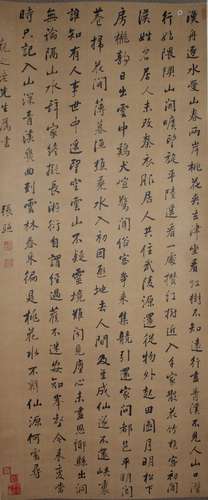 漁舟逐水愛山春兩岸桃花夾去津坐看紅樹不知遠行盡青溪不見人山口潛
行始隈隩山開曠望旋平陸遙看一處攢雲樹近入千家散花竹樵客初傳
漢姓名居人未改秦衣服居人共住武陵源還從物外起田園月明松下
房櫳靜日出雲中雞犬喧驚聞俗客爭來集競引還家問都邑平明閭
巷掃花開薄暮漁樵乘水入初因避地去人間及至成仙遂不還峽裏
誰知有人事世中遙望空雲山不疑靈境難聞見塵心未盡思鄉縣出洞
無論隔山水辭家終擬長游衍自謂經過舊不迷安知峰壑今來變當
時只記入山深青溪幾曲到雲林春來遍是桃花水不辨仙源何處尋
先生屬書
張照